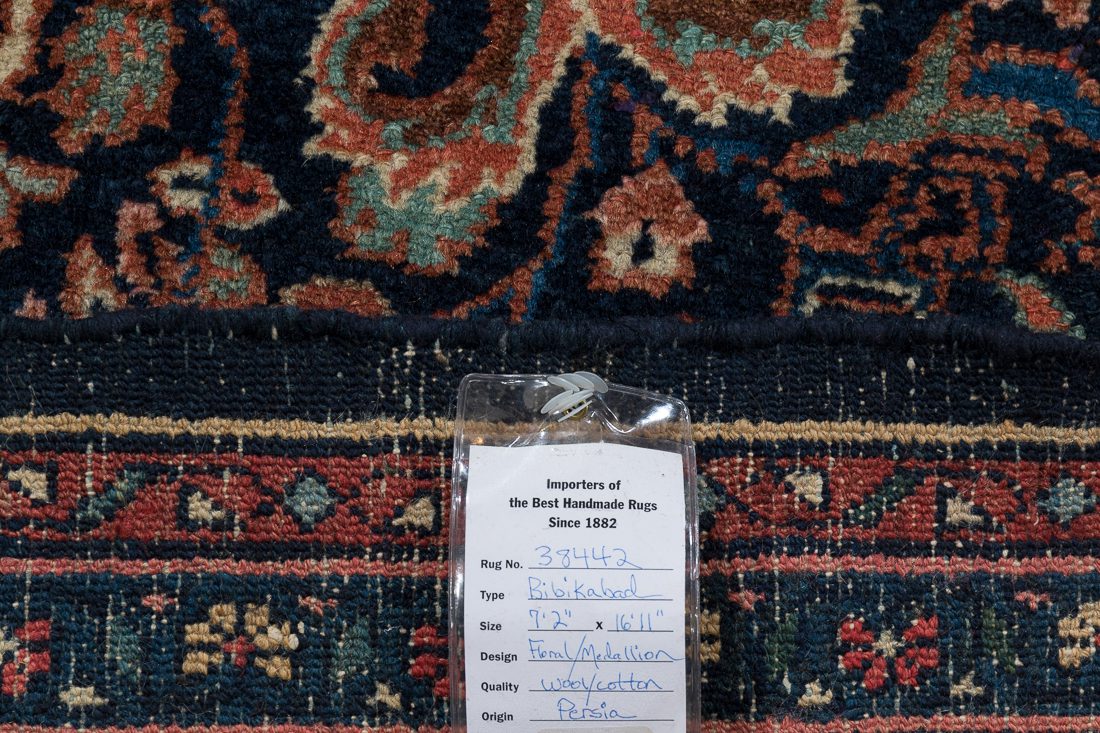 Importers of
the Best Handmade Rugs
Since 1882
Rug No. 38442
Type Bibikabad
Size 7'2" x 16'11"
Design Floral/Medallion
Quality wool/cotton
Origin Persia